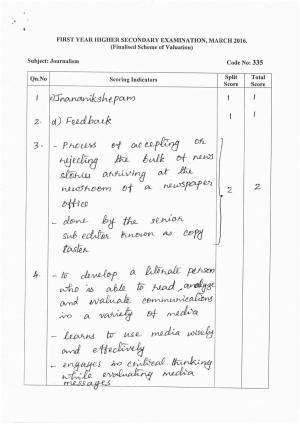 FIRST YEAR HIGHER SECONDARY EXAMINATION, MARCH 2016.
(Finalised Scheme of Valuation)
Subject: Journalism Code No: 335
Qn.No Scoring Indicators Split Score Total Score
1 a) Jnananikshepam 1 1
2. d) Feedback 1 1
3. - Process of accepting or
rejecting the bulk of news
stories arriving at the
newsroom of a newspaper
office 2 2
- done by the senior
sub editor known as copy
taster
4. - to develop a literate person
who is able to read, analyse
and evaluate communications
in a variety of media
- learns to use media wisely
and effectively
- engages in critical thinking
while evaluating media
messages